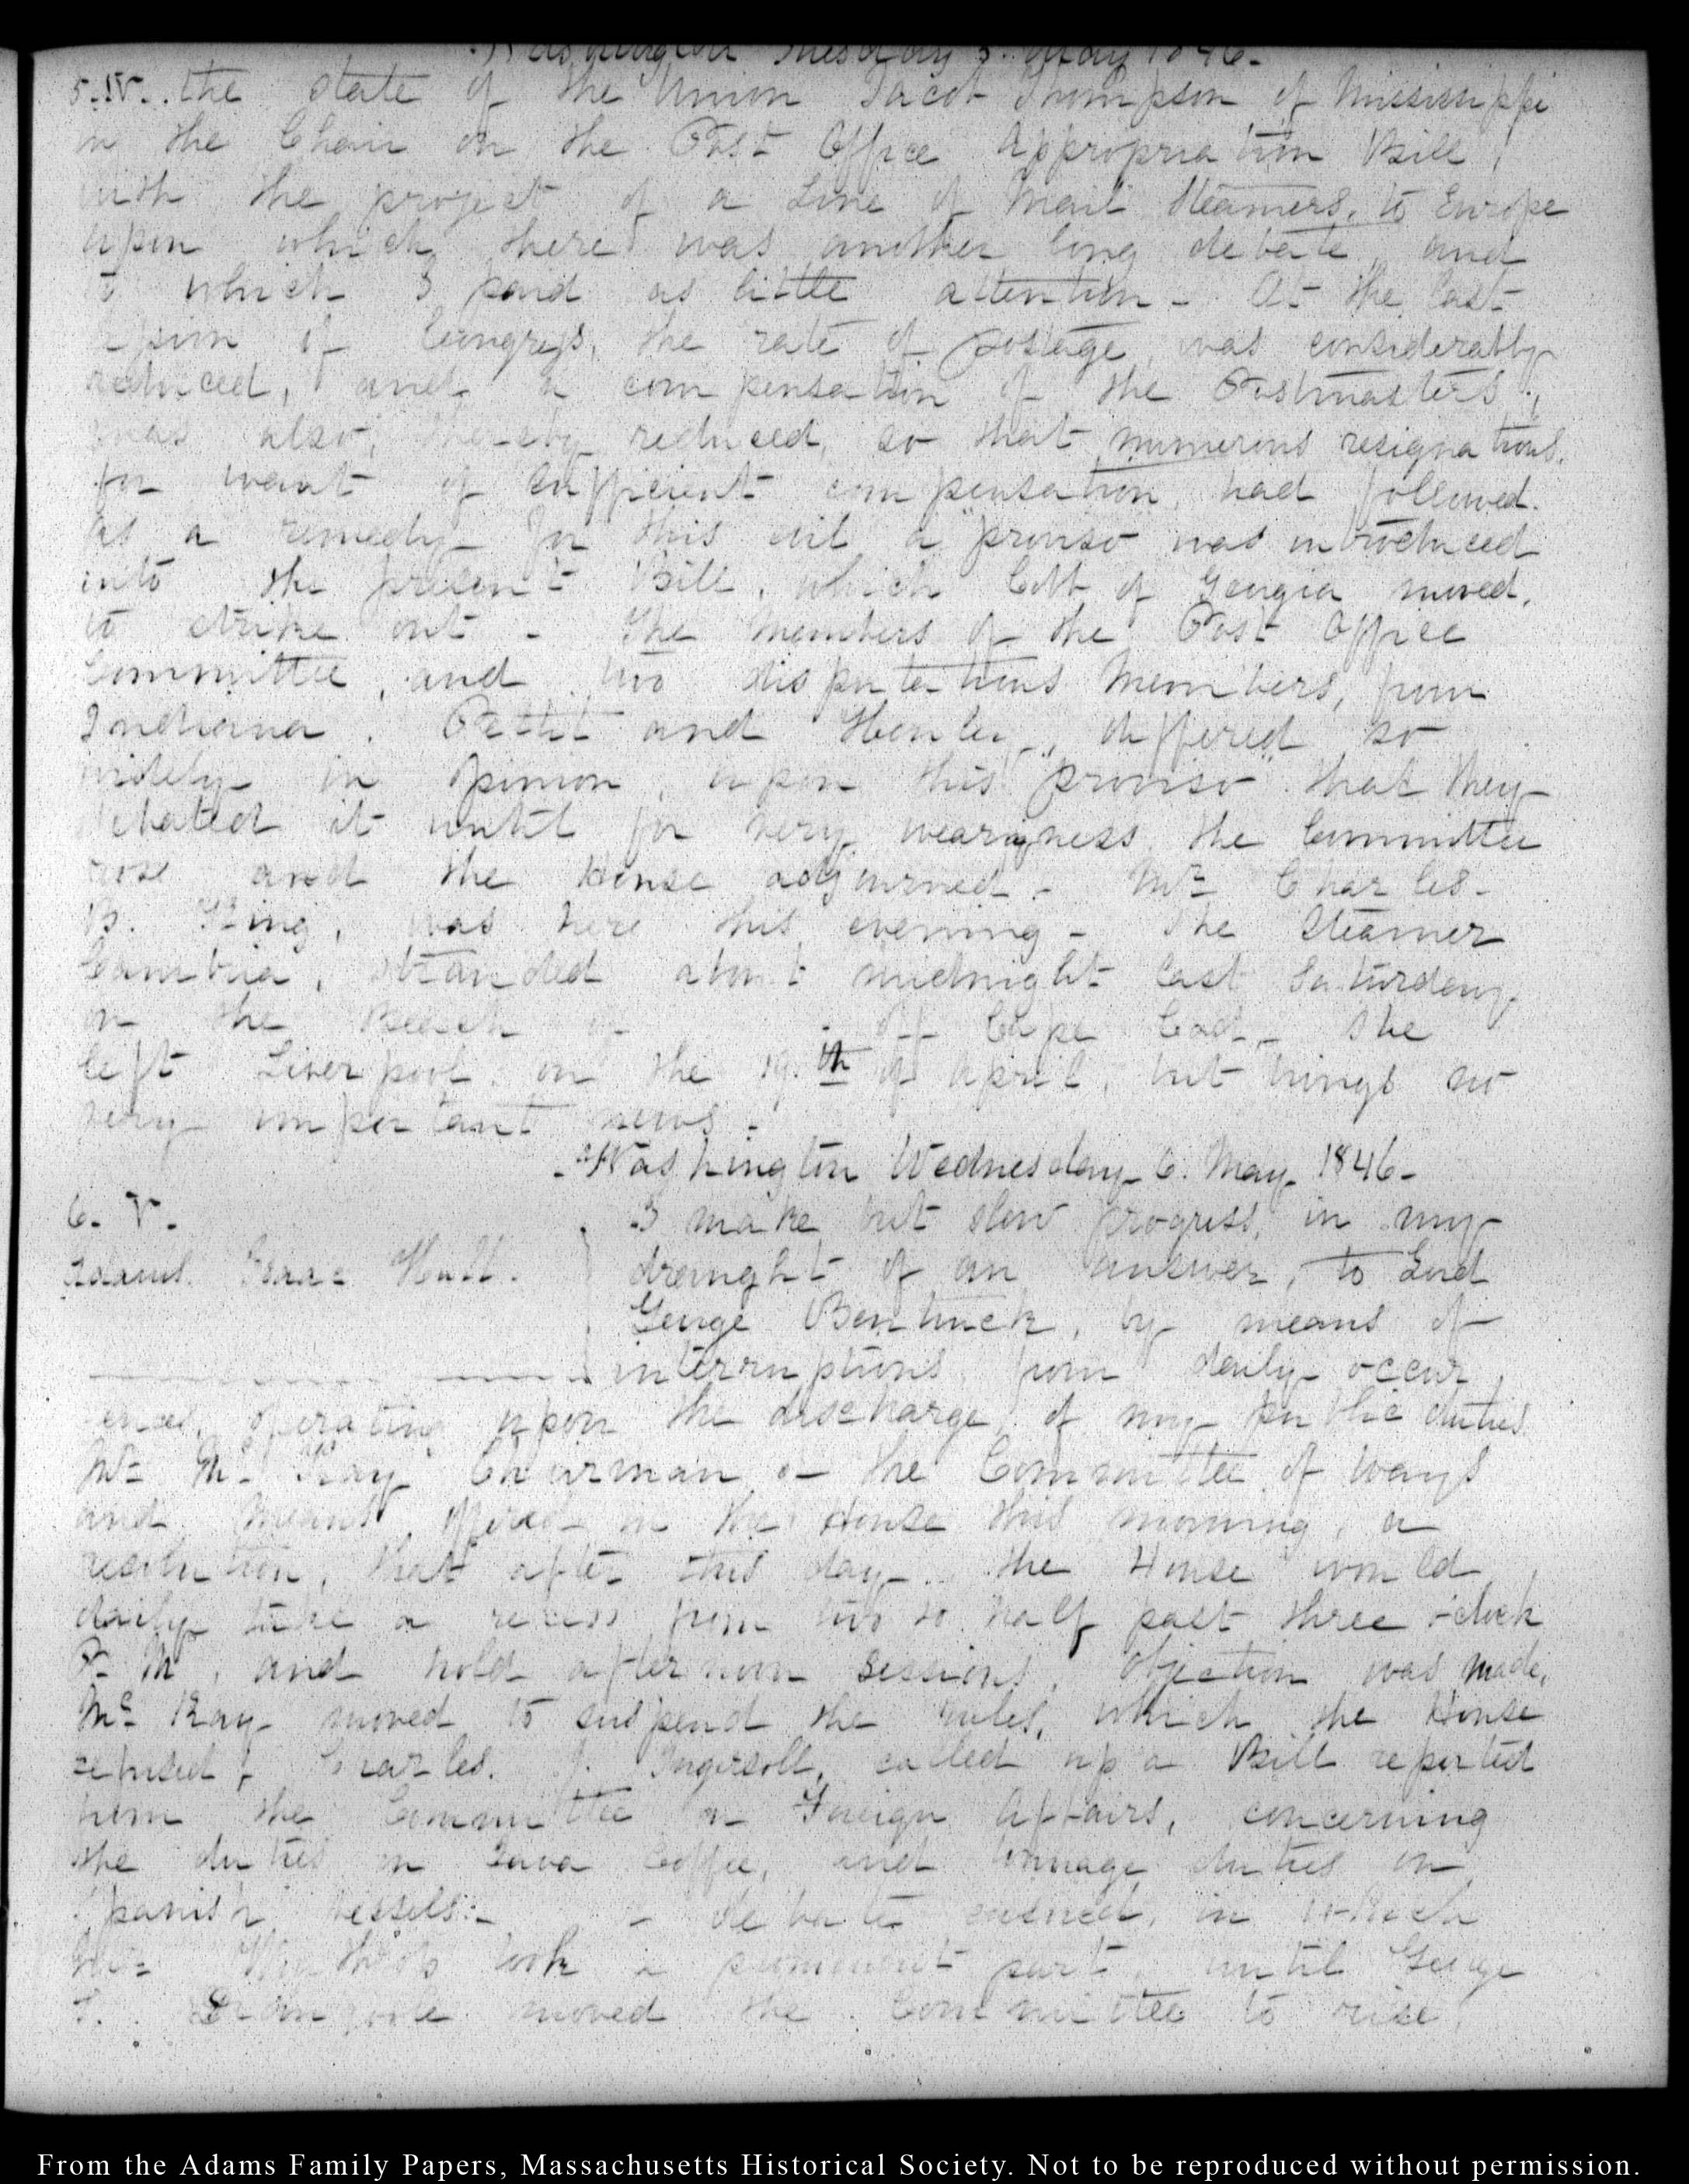 Washington Tuesday 5. May 1846-
5. IV. the state of the Union Jacob Thompson of Mississippi
in the Chair on the Post Office Appropriation Bill,
with the project of a Line of Mail Steamers, to Europe
upon which there was another long debate, and
to which I paid as little attention - At the last
Session of Congress, the rate of postage, was considerably
reduced, and compensation of the Postmasters,
was also, thereby reduced, so that numerous resignations.
for want of sufficient compensation, had followed.
As a remedy for this evil a "proviso was introduced
into the present Bill, which Cobb of Georgia moved,
to strike out - The members of the Post Office
Committee, and two disputatious Members, from
Indiana. Pettit and Henley, differed so
widely in opinion, upon this "proviso" that they
debated it until for very weariness the Committee
rose and the House adjourned - Mr. Charles-
B. King, was here this evening - The Steamer
Cambria, stranded about midnight last Saturday,
on the Beach off Cape Cod - She
left Liverpool on the 19.th of April, but brings no
very important news -
Washington Wednesday 6. May 1846-
6. V.
Adams. Isaac Hull.
I make but slow progress, in my
draught of an answer, to Lord
George Bentinck, by means of
interruptions from daily occur
ences, operating upon the discharge of my public duties
Mr. McKay Chairman of the Committee of Ways
and Means, offered in the House this morning, a
resolution, that after this day - the House would
daily take a recess from two to half past three o'clock
P. M, and hold afternoon sessions, objection was made,
McKay moved to suspend the rules, which the House
refused, Charles. J. Ingersoll, called up a Bill reported
from the Committee on Foreign Affairs, concerning
the duties on Java Coffee, and tonnage duties on
Spanish vessels - debate ensued, in which
took a prominent part, until George
C. Dromgoole moved the Committee to rise,
From the Adams Family Papers, Massachusetts Historical Society. Not to be reproduced without permission.